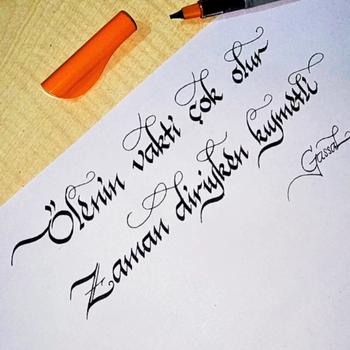 Ölenin vakti çok olur
Zaman diriyken kıymetli
Gassal